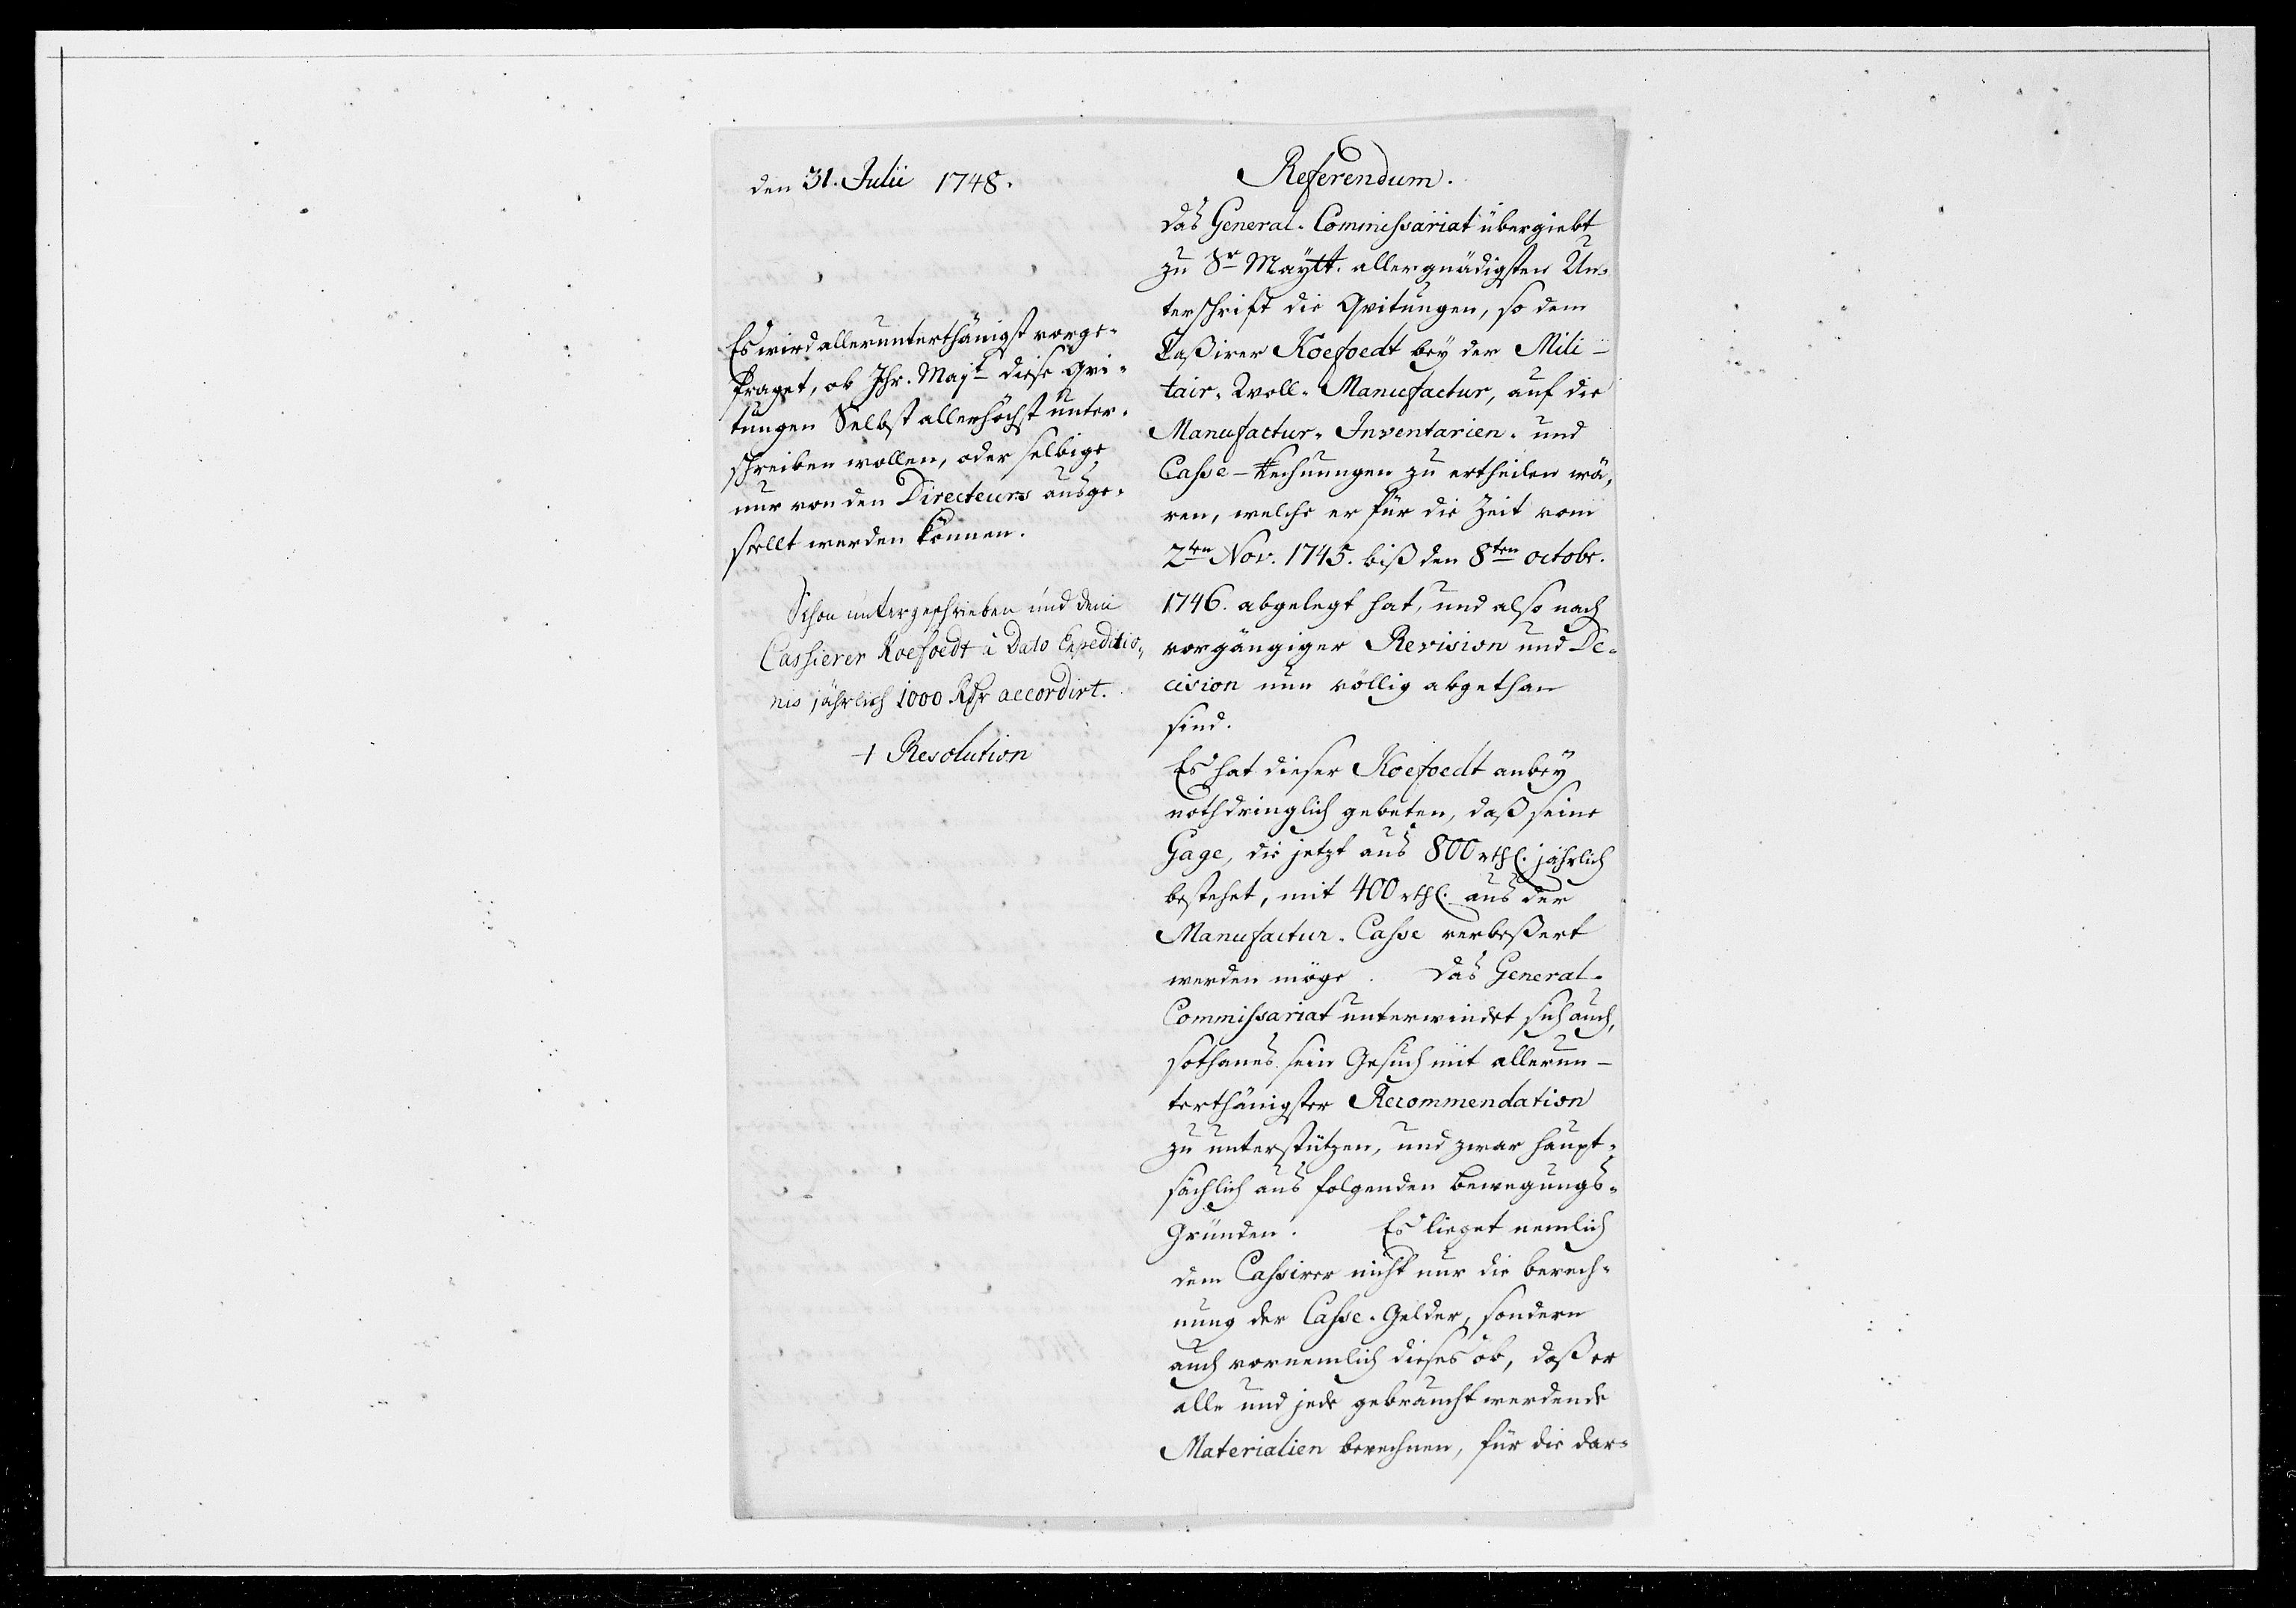 den 31. Julii 1748.
Es wird allerunterthänigst vorge-
fraget, ob Ihr. Majt diese Qvi-
tungen Selbst allerhöchst unter-
schreiben wollen, oder selbige
nur von den Directeurs ausge-
stellt werden können.
Schon untergeschrieben und dem
Cassierer Koefoedt à Dato Expeditio-
nis jährlich 1000 Rthr accordirt.
+ Resolution
6
Referendum.
Das General-Commissariat übergiebt
zu Sr Maytt. allergnädigsten Un-
terschrift die Qvitungen, so dem
Caßirer Koefoedt bey der Mili-
tair-Woll-Manufactur, auf die
Manufactur-Inventarien- und
Casse-Rechnungen zu ertheilen wä-
ren, welche er für die Zeit vom
2ten Nov. 1745. biß den 8ten octobr.
1746. abgelegt hat, und also nach
vorgängiger Revision und De-
cision nun völlig abgethan
sind.
Es hat dieser Koefoedt anbey
nothdringlich gebeten, daß seine
Gage, die jetzt aus 800 rthl. jährlich
bestehet, mit 400 rthl. aus der
Manufactur-Casse verbeßert
werden möge. Das General-
Commissariat unterwindet sich auch,
sothanes sein Gesuch mit allerun-
terthänigster Recommendation
zu unterstützen, und zwar haupt-
sächlich aus folgenden Bewegungs-
Gründen. Es lieget nemlich
dem Cassirer nicht nur die Berech-
nung der Casse-Gelder, sondern
auch vornemlich dieses ob, daß er
alle und jede gebraucht werdende
Materialien berechnen, für die dar-